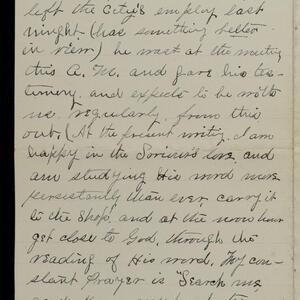 left the City's employ last
night (has something better
in view) he was at the meeting
this A.M. and gave his tes-
timony and expects to be with
us regularly from this
out. (At the present writing I am
happy in the Saviour's love and
am studying His word more
persistently than ever, carry it
to the shop, and at the noon hour
get close to God, through the
reading of His word. My con-
stant prayer is "Search me